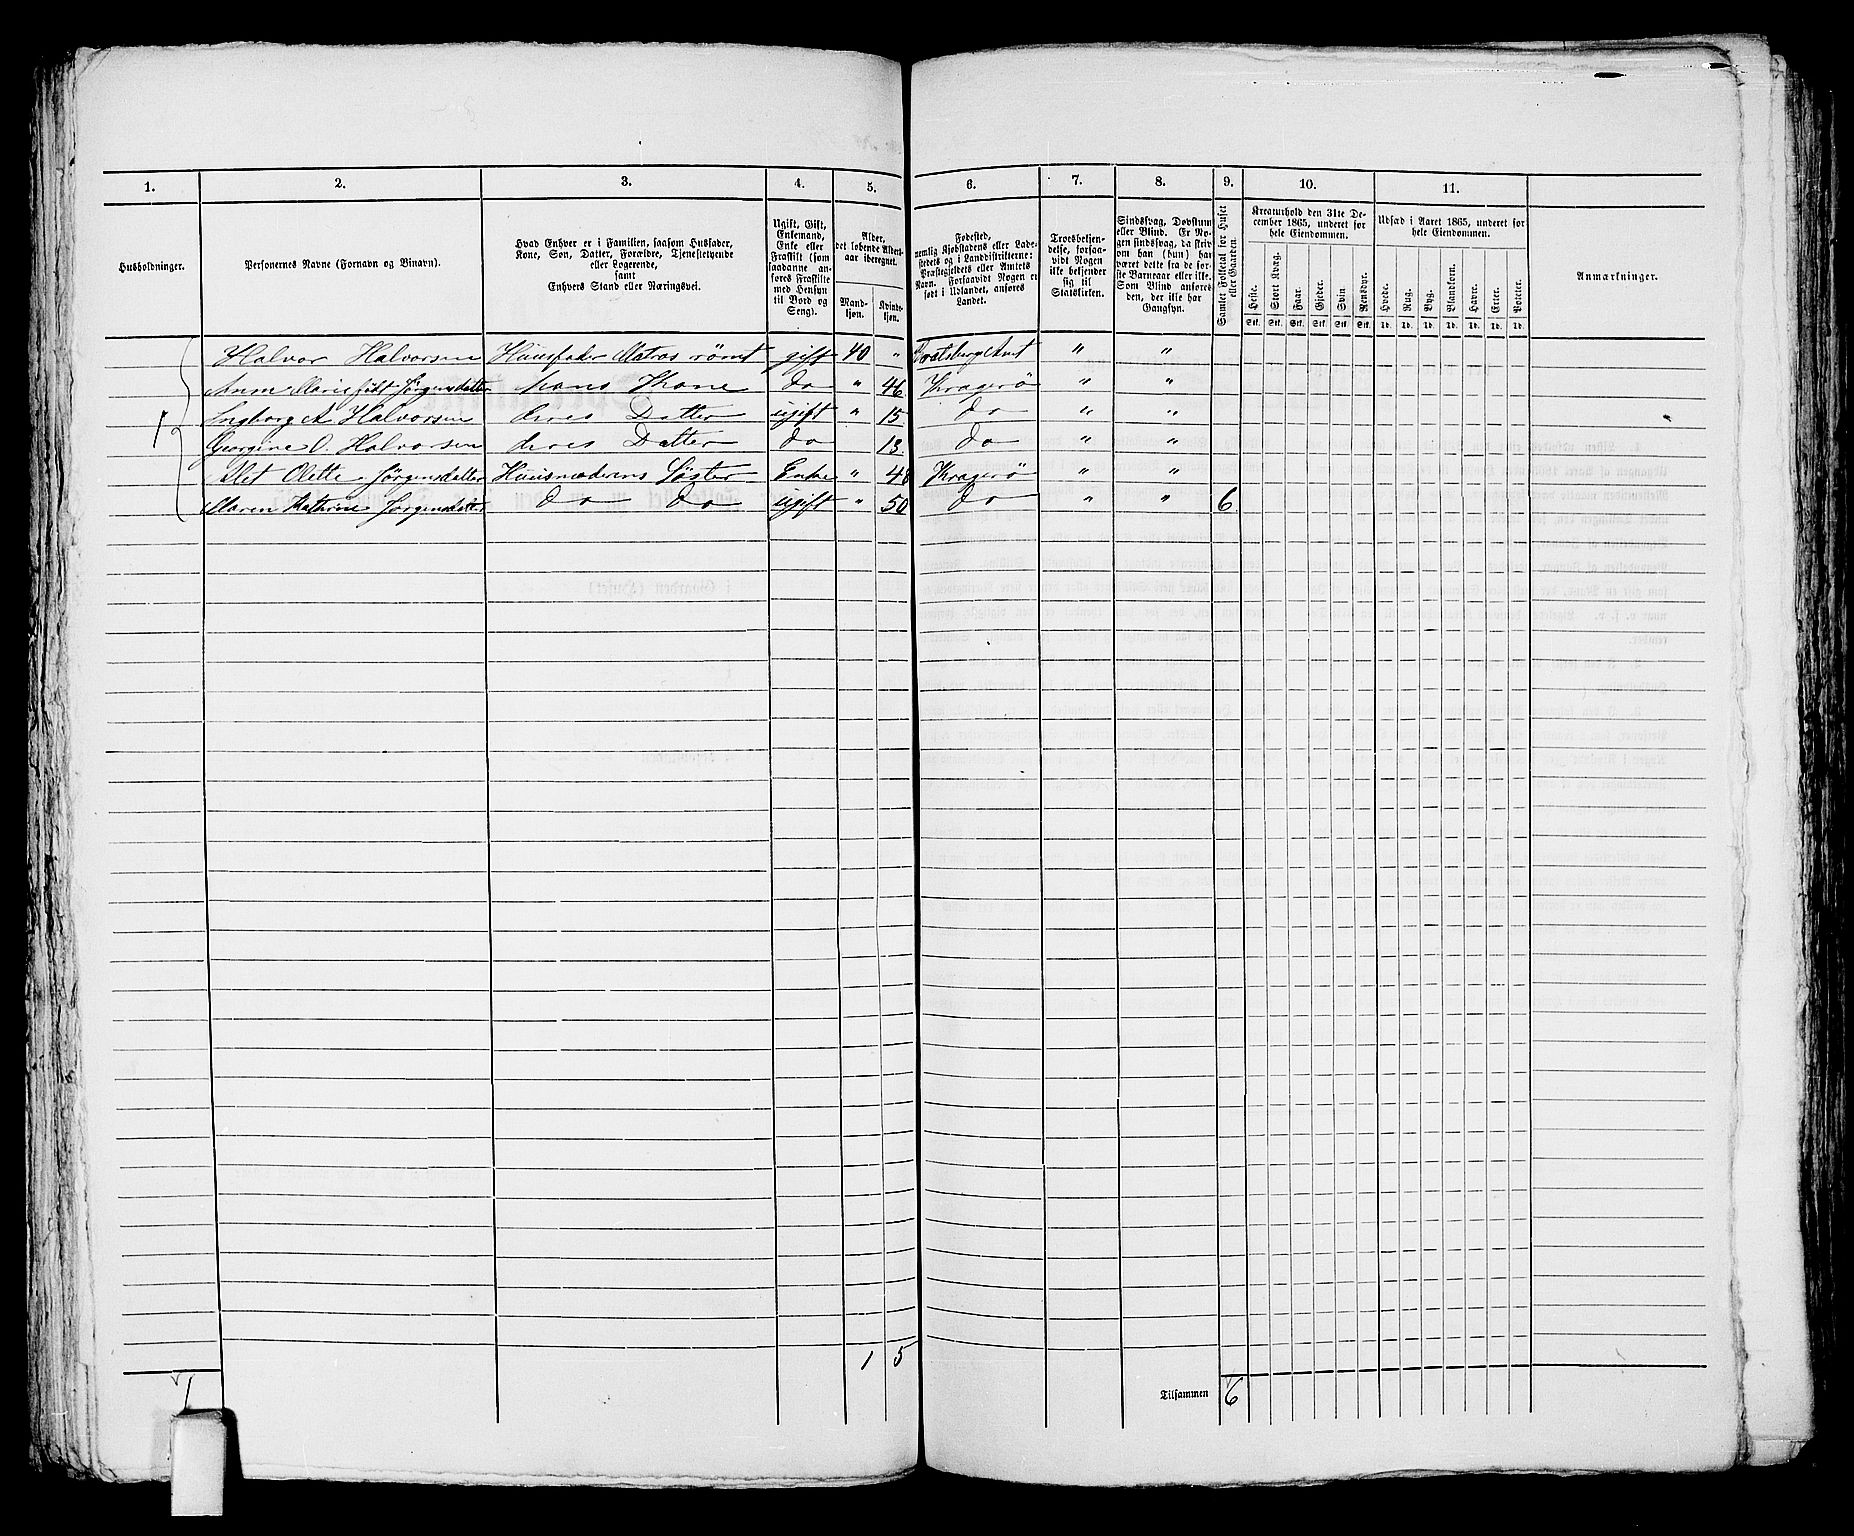 1. 2. 3. 4. 5. 6. 7. 8. 9. 10. 11.
Husholdninger.
Personernes Navne (Fornavn og Binavn).
Hvad Enhver er i Familien, saasom Husfader,
Kone, Søn, Datter, Forældre, Tjenestetyende
eller Logerende,
samt
Enhvers Stand eller Næringsvei.
Ugift, Gift,
Enkemand,
Enke eller
Fraskilt (som
saadanne an-
føres Fraskilte
med Hensyn
til Bord og
Seng).
Alder,
det løbende Alders-
aar iberegnet.
Mand-
kjøn.
Kvinde-
kjøn.
Fødested,
nemlig Kjøbstadens eller Lade-
stedets og i Landdistrikterne:
Præstegjeldets eller Amtets
Navn. Forsaavidt Nogen er
født i Udlandet, anføres
Landet.
Troesbekjen-
delse, forsaa-
vidt Nogen
ikke bekjender
sig til
Statskirken.
Sindssvag, Døvstum
eller Blind. Er No-
gen sindssvag, da skriv
om han (hun) har
været dette fra de før-
ste Barneaar eller ikke.
Som Blind anføres
den, der ikke har
Gangsyn.
Samlet Folketal for Huset
eller Gaarden.
Kreaturhold den 31te De-
cember 1865, underet for
hele Eiendommen.
Heste. Stort Kvæg. Faar. Gjeder. Svin Rensdyr.
Stk. Stk. Stk. Stk. Stk. Stk.
Udsæd i Aaret 1865, underet for
hele Eiendommen.
Hvede. Rug. Byg. Blandkorn. Havre. Erter. Poteter.
Td. Td. Td. Td. Td. Td. Td.
Anmærkninger.
Halvor Halvorsen Huusfader Matros rømt gift 40 " Bratsberg Amt " "
Anne Marie født Jørgensdatter hans Kone do " 46 Kragerø " "
1 Ingborg A Halvorsen deres Datter ugift " 15 do " "
Georgine O. Halvorsen deres Datter do 13 do " "
Met Olette Jørgensdatter Huusmoderens Søster Enke " 48 Kragerø " "
Maren Kathrine Jørgensdatter do do ugift " 50 do " " 6
1 5
1
Tilsammen 6